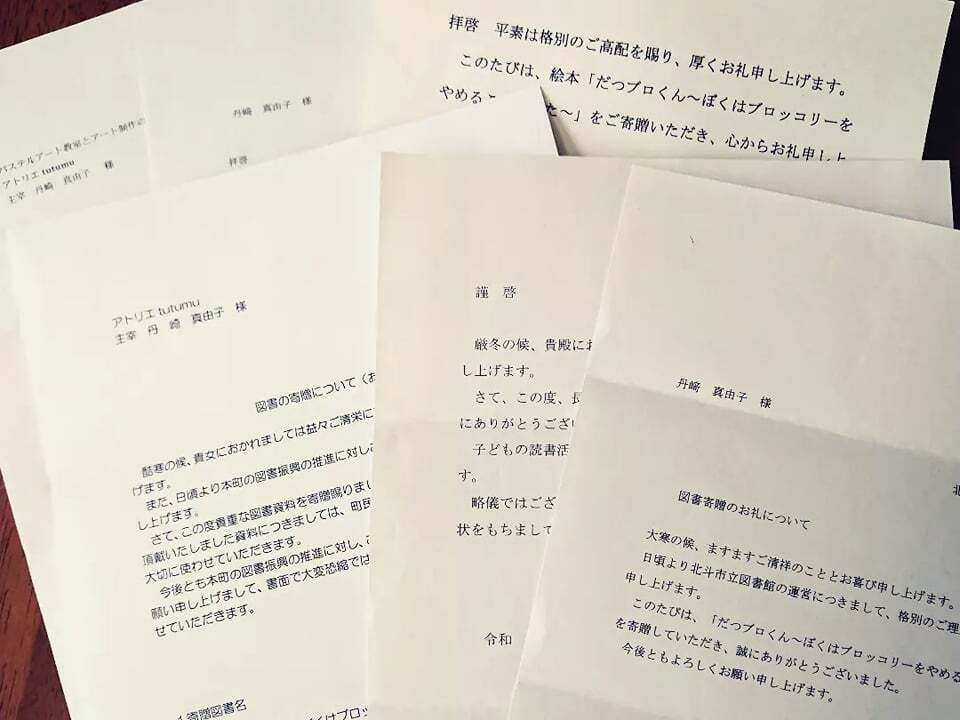 パステルアート教室とアート制作
アトリエ tutumu
主宰 丹﨑 真由子 様
丹﨑 真由子 様
拝啓
拝啓 平素は格別のご高配を賜り、厚くお礼申し上げます。
このたびは、絵本「だつブロくん～ぼくはブロッコリーを
やめるこ た～」をご寄贈いただき、心からお礼申し上
アトリエ tutumu
主宰 丹 﨑 真由子 様
図書の寄贈について（お
酷寒の候、貴女におかれましては益々ご清栄に
げます。
また、日頃より本町の図書振興の推進に対しこ
し上げます。
さて、この度貴重な図書資料を寄贈賜りまし
頂戴いたしました資料につきましては、町民
大切に使わせていただきます。
今後とも本町の図書振興の推進に対し、こ
願い申し上げまして、書面で大変恐縮では
せていただきます。
1 寄贈図書名
くはブロッ
謹 啓
厳冬の候、貴殿にお
し上げます。
さて、この度、長
にありがとうござい
子どもの読書活
す。
略儀ではござ
状をもちまして
令和
丹﨑 真由子 様
北
図書寄贈のお礼について
大寒の候、ますますご清祥のこととお喜び申し上げます。
日頃より北斗市立図書館の運営につきまして、格別のご理
申し上げます。
このたびは、「だつブロくん～ぼくはブロッコリーをやめる
を寄贈していただき、誠にありがとうございました。
今後ともよろしくお願い申し上げます。